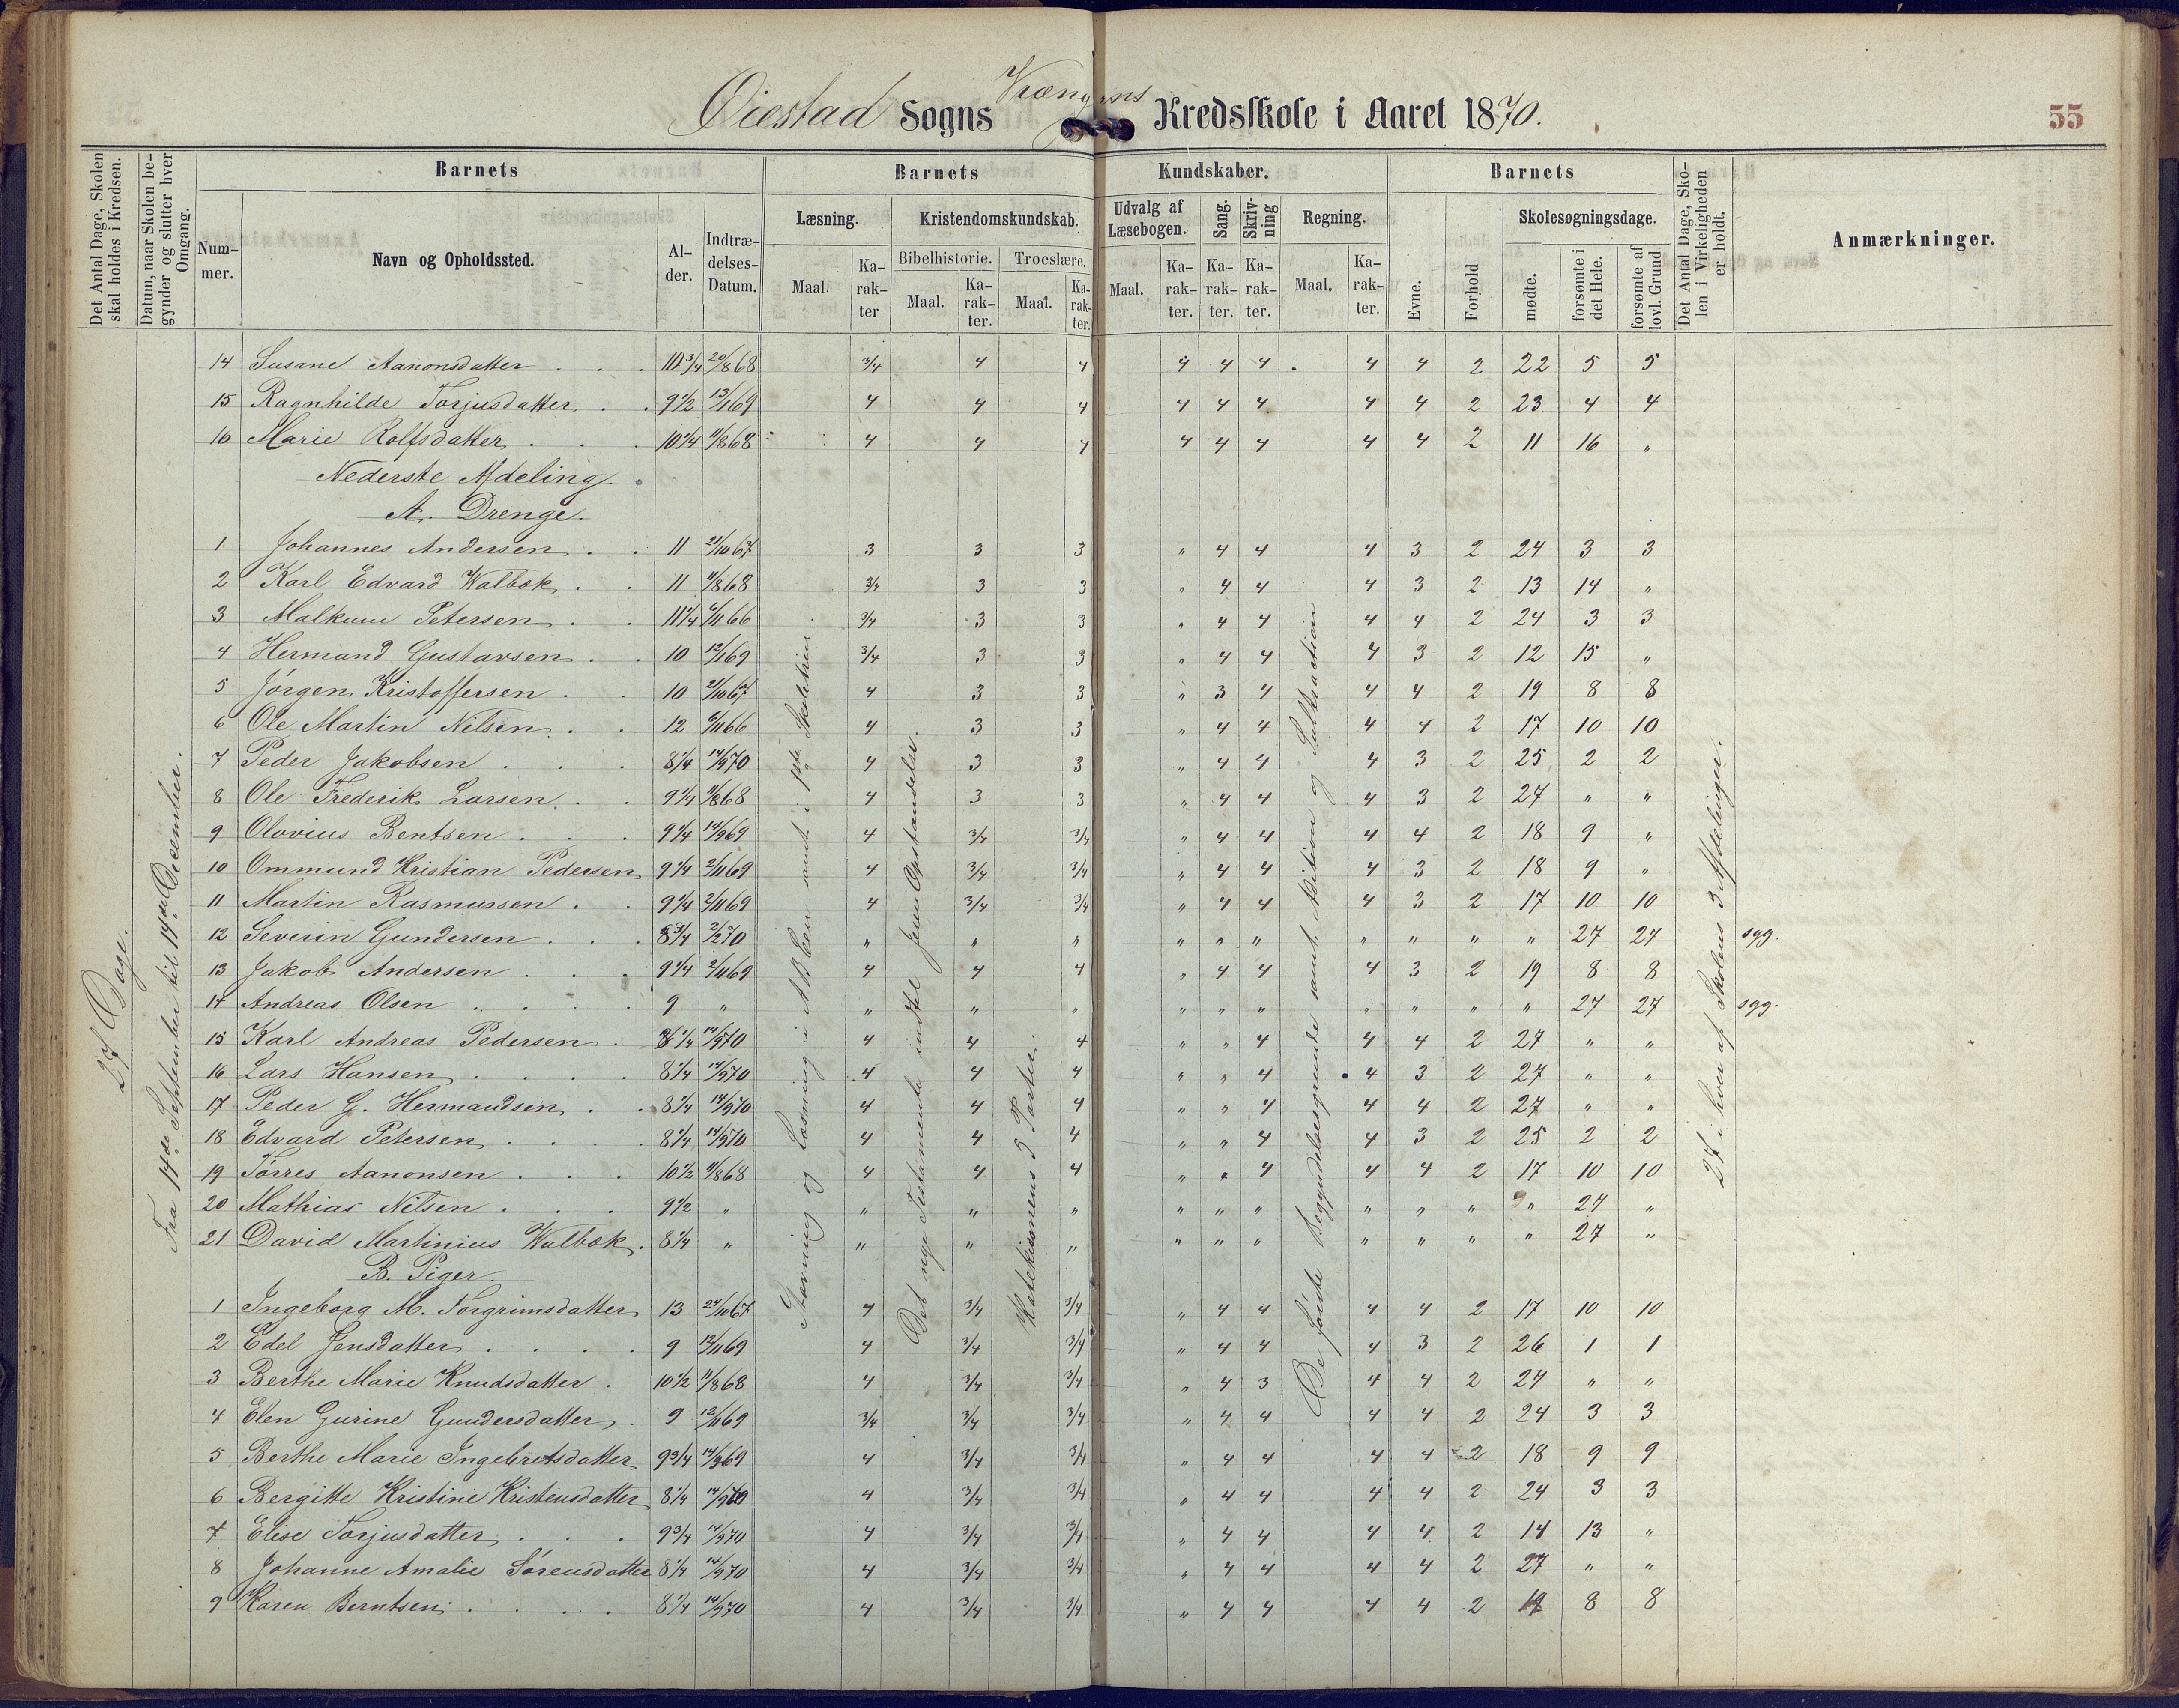 Øiestad Sogns Kredsskole i Aaret 1870.
55
Det Antal Dage, Skolen skal holdes i Kredsen.
Datum, naar Skolen begynder og slutter hver Omgang.
Barnets
Barnets
Kundskaber.
Barnets
Det Antal Dage, Skolen i Virkeligheden er holdt.
Anmærkninger.
Nummer.
Navn og Opholdssted.
Alder.
Indtrædelses-Datum.
Læsning.
Kristendomskundskab.
Udvalg af Læsebogen.
Sang.
Skrivning
Regning.
Skolesøgningsdage.
Bibelhistorie.
Troeslære.
Maal.
Karakter
Maal.
Karakter.
Maal.
Karakter.
Maal.
Karakter.
Karakter.
Karakter.
Maal.
Karakter.
Evne.
Forhold
mødte.
forsømte i det Hele.
forsømte af lovl. Grund.
27 Dage.
Fra 14de September til 14de December.
14 Susane Aanonsdatter 10 3/4 20/8 68 3/4 4 4 4 4 4 4 4 2 22 5 5
15 Ragnhilde Torjusdatter 9 1/2 13/1 69 4 4 4 4 4 4 4 4 2 23 4 4
16 Marie Rolfsdatter 10 1/4 11/8 68 4 4 4 4 4 4 4 4 2 11 16 "
Nederste Afdeling.
A. Drenge.
1 Johannes Andersen 11 21/10 67 3 3 3 " 4 4 4 3 2 24 3 3
2 Karl Edvard Walbok 11 11/8 68 3/4 3 3 " 4 4 4 3 2 13 14 "
3 Malkum Petersen 11 1/4 6/11 66 3/4 3 3 " 4 4 4 4 2 24 3 3
4 Hermand Gustavsen 10 12/1 69 3/4 3 3 " 4 4 4 3 2 12 15 "
5 Jørgen Kristoffersen 10 21/10 67 4 3 3 " 3 4 4 4 2 19 8 8
6 Ole Martin Nilsen 12 6/11 66 4 3 3 " 4 4 4 4 2 17 10 10
7 Peder Jakobsen 8 1/4 14/9 70 4 3 3 " 4 4 4 3 2 25 2 2
8 Ole Frederik Larsen 9 1/4 11/8 68 4 3 3 " 4 4 4 3 2 27 " "
9 Olovius Bentsen 9 1/4 14/9 69 4 3/4 3/4 " 4 4 4 4 2 18 9 "
10 Ommund Kristian Pedersen 9 1/4 2/11 69 4 3/4 3/4 " 4 4 4 3 2 18 9 "
11 Martin Rasmussen 9 1/4 2/11 69 4 3/4 3/4 " 4 4 4 3 2 17 10 10
12 Severin Gundersen 8 3/4 2/2 70 " " " " " " " " " " 27 27 syg.
13 Jakob Andersen 9 1/4 2/11 69 4 4 4 " 4 4 4 3 2 19 8 8
14 Andreas Olsen 9 " " " " " " " " " " " 27 27 syg.
15 Karl Andreas Pedersen 8 1/4 14/9 70 4 4 4 " " 4 4 4 2 27 " "
16 Lars Hansen 8 1/4 14/9 70 4 4 4 " " 4 4 3 2 27 " "
17 Peder G. Hermandsen 8 1/4 14/9 70 4 4 4 " " 4 4 4 2 27 " "
18 Edvard Petersen 8 1/4 14/9 70 4 4 4 " " 4 4 3 2 25 2 2
19 Tørres Aanonsen 10 1/2 11/8 68 4 4 4 " " 4 4 4 2 17 10 10
20 Mathias Nilsen 9 1/2 " " " " " " " " " " " 27 "
21 David Martinius Walbok 8 1/4 " " " " " " " " " " " 27 "
B. Piger.
1 Ingeborg M. Torgrimsdatter 13 24/10 67 4 3/4 3/4 " 4 4 4 4 2 17 10 10
2 Edel Jensdatter 9 12/11 69 4 3/4 3/4 " 4 4 4 3 2 26 1 1
3 Berthe Marie Knudsdatter 10 1/2 11/8 68 4 3/4 3/4 " 4 3 4 4 2 27 " "
4 Elen Gurine Gundersdatter 9 12/11 69 3/4 3/4 3/4 " 4 4 4 4 2 24 3 3
5 Berthe Marie Ingebretsdatter 9 3/4 14/9 69 4 3/4 3/4 " 4 4 4 4 2 18 9 9
6 Bergitte Kristine Kristensdatter 8 1/4 14/9 70 4 3/4 3/4 " 4 4 4 4 2 24 3 3
7 Elise Torjusdatter 9 3/4 14/9 70 4 3/4 3/4 " 4 4 4 4 2 14 13 "
8 Johanne Amalie Sørensdatter 8 1/4 14/9 70 4 3/4 3/4 " 4 4 4 4 2 27 " "
9 Karen Berntsen 8 1/4 14/9 70 4 3/4 3/4 " 4 4 4 4 2 19 8 8
Stavning og Læsning i ABCen samt i 1ste Skoletrin.
Det nye Testamente indtil Jesu Opstandelse.
Katekismens 3 Parter.
De første Begyndelsesgrunde samt Adition og Subtraction
27 i hver af Skolens 3 Afdelinger.